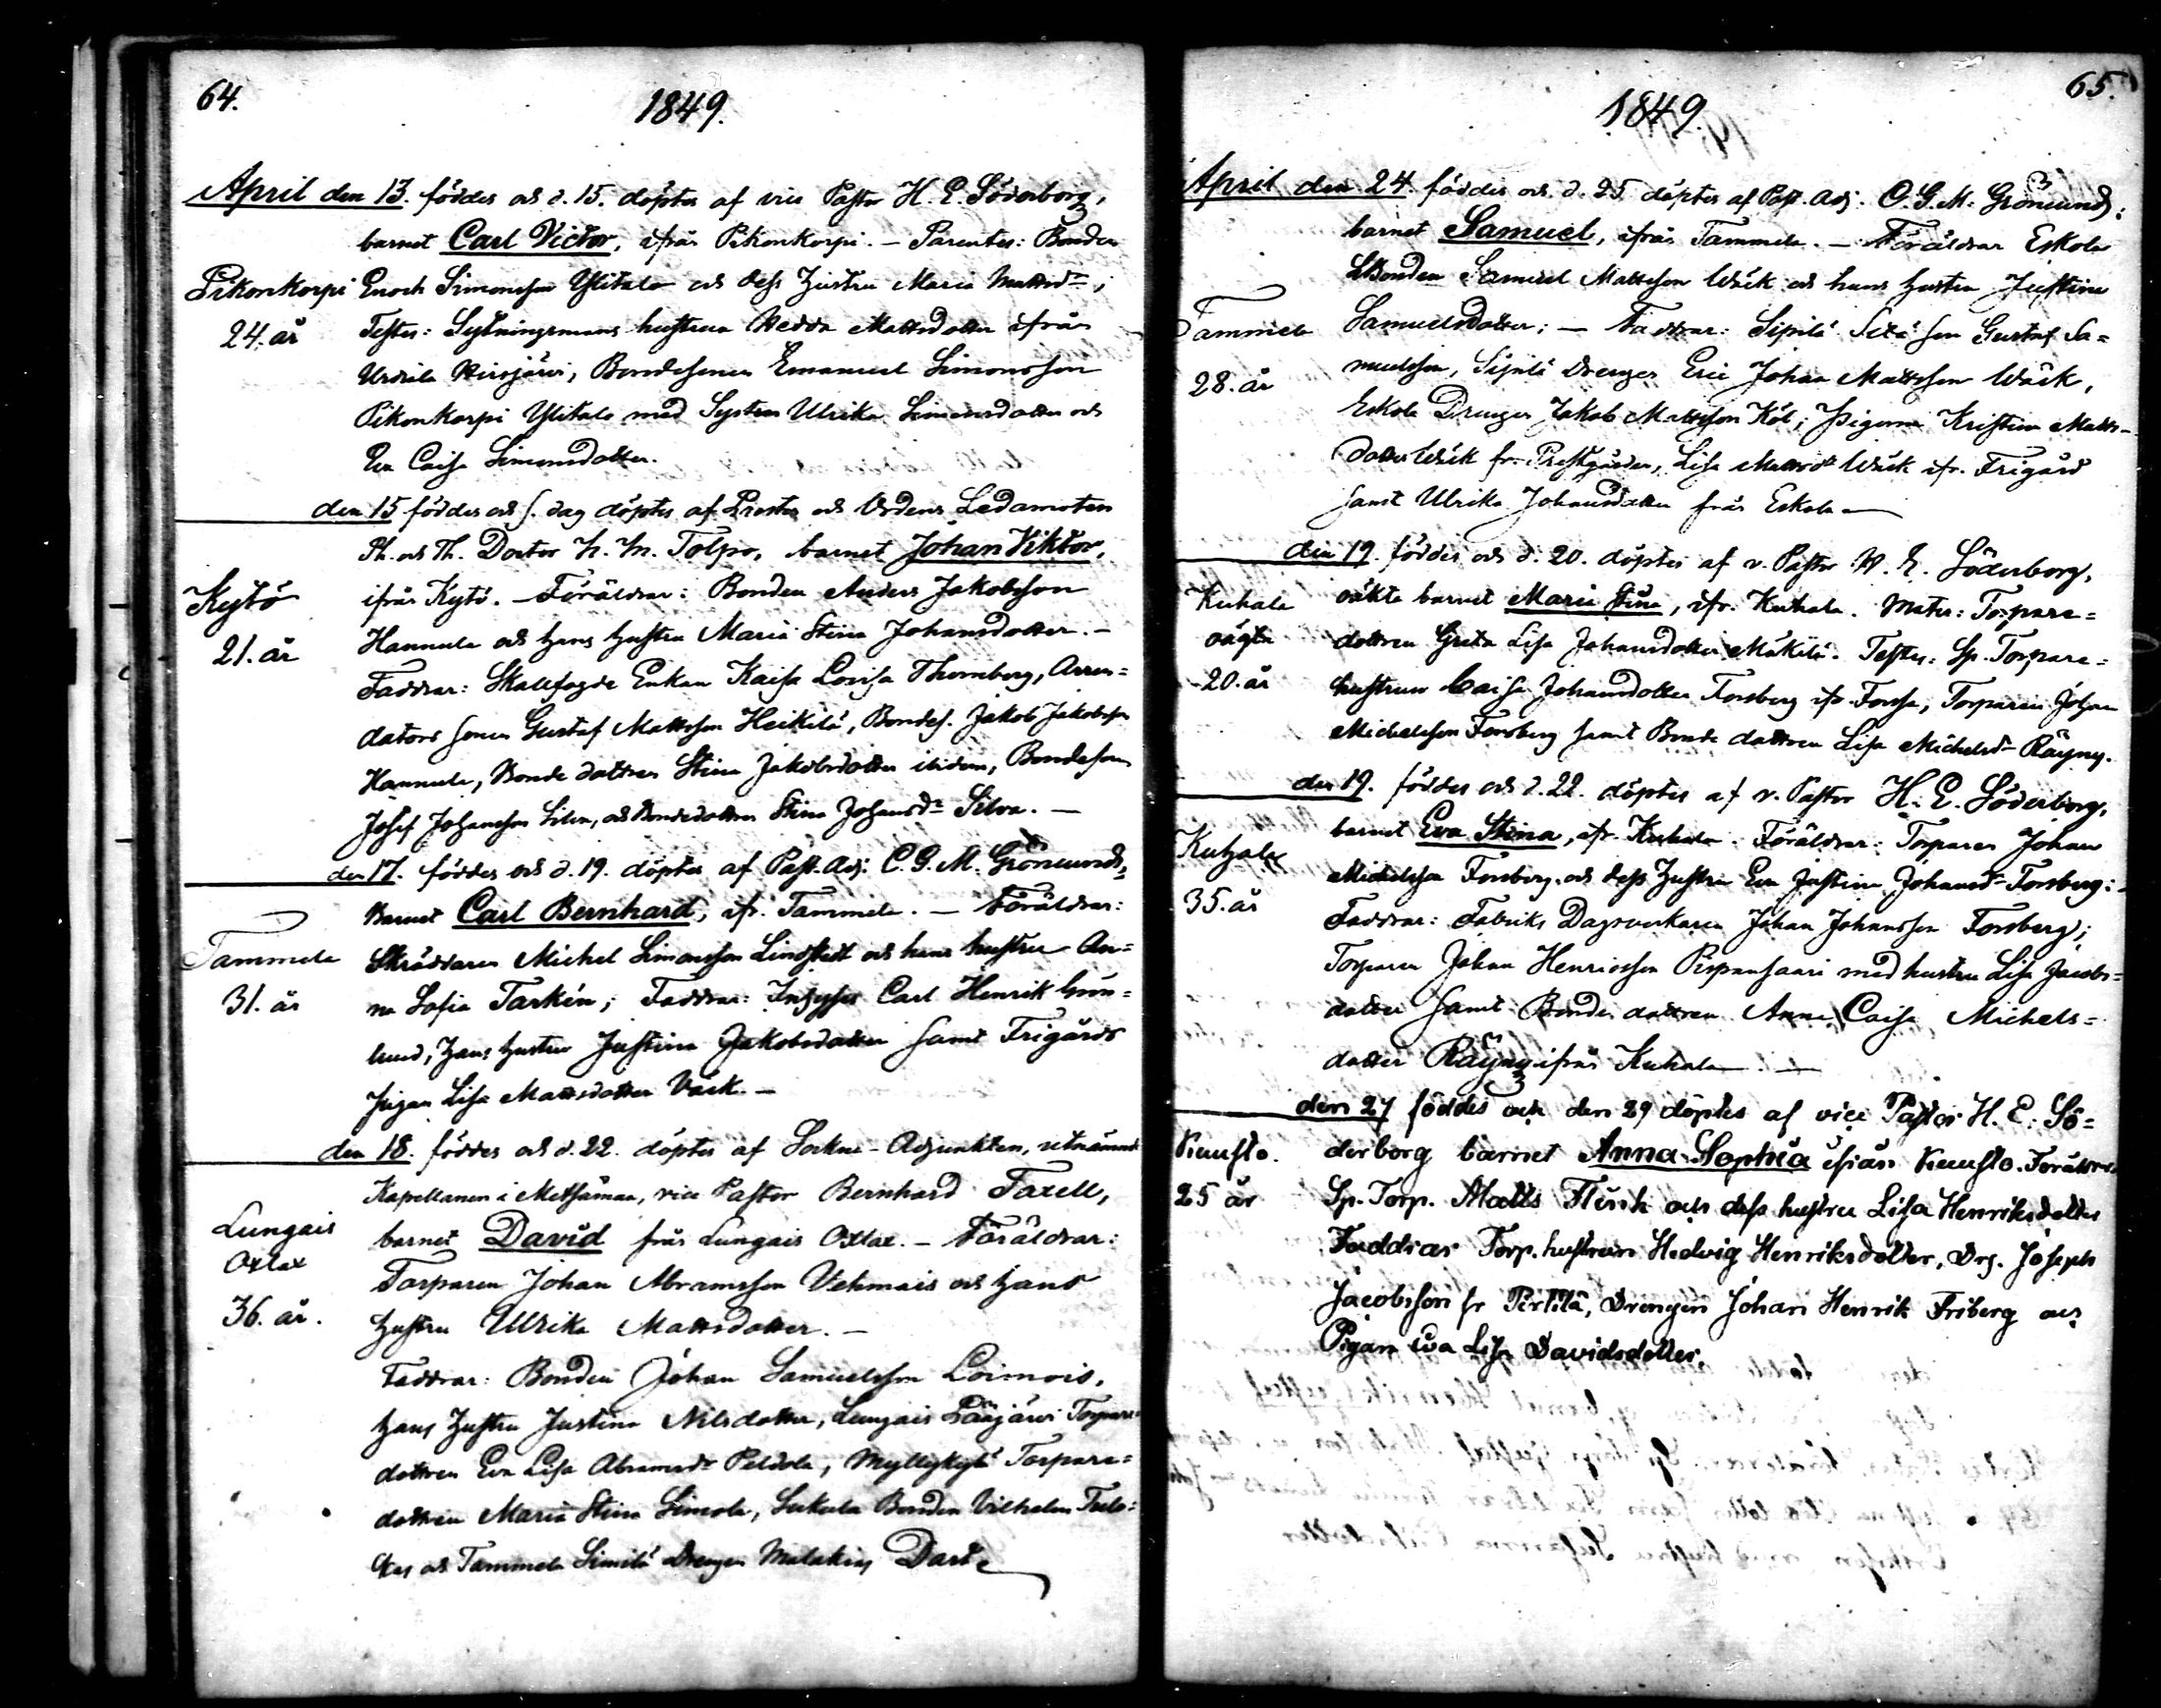 64.
1849.
April den 13. föddes och d. 15. döptes af vice Pastor H. E. Söderborg,
barnet Carl Victor, ifrån Pikonkorpi. — Parentes: Bonden
Pikonkorpi Enoch Simonsson Ylitalo och dess hustru Maria Mattsdr;
24. år Testes: Sytningsmans hustrun Hedda Mattsdotter ifrån
Urdiala Hirsjärvi, Bondesonen Emanuel Simonsson
Pikonkorpi Ylitalo med Systran Ulrika Simonsdotter och
Eva Caisa Simonsdotter.
den 15 föddes och s. dag döptes af Prosten och Ordens Ledamoten
Ph. och Th. Doctor H. M. Tolpo, barnet Johan Viktor,
Kytö ifrån Kytö. — Föräldrar: Bonden Anders Jakobsson
21. år Hannula och hans hustru Maria Stina Johansdotter. —
Faddrar: Skallfogde Enkan Kaisa Lovisa Thornberg, Arren=
dators sonen Gustaf Mattsson Heikilä, Bondes. Jakob Jakobsson
Hannula, Bonde dottren Stina Jakobsdotter ibidem, Bondeson
Josef Johansson Silva, och Bondedottren Stina Johansdr Silva. —
den 17. föddes och d. 19. döptes af Past. Adj. C. G. M. Grönmund,
Barnet Carl Bernhard, ifr. Tammela. — Föräldrar:
Tammela Skräddaren Michel Simonsson Lindstedt och hans hustru An=
31. år na Sofia Tarkén; Faddrar: Inhyses Carl Henrik Grön=
lund, hans hustru Justina Jakobsdotter samt Frigårds
pigan Lisa Mattsdotter Väck. —
den 18. föddes och d. 22. döptes af Sockne-Adjunkten, utnämnde
Kapellanen i Metsämaa, vice Pastor Bernhard Faxell,
Lungais barnet David från Lungais Oxlax. — Föräldrar:
Oxlax Torparen Johan Abramsson Vehmais och hans
36. år. hustru Ulrika Mattsdotter. —
Faddrar: Bonden Johan Samuelsson Loimois,
hans hustru Justina Nilsdotter, Lungais Pääjärvi Torpare=
dottren Eva Lisa Abramsdr Peldola, Myllykylä Torpare=
dottren Maria Stina Simola, Sukula Bonden Vilhelm
och Tammela Similä Drengen Malakias Dart
65.
1849.
April den 24. föddes och d. 25 döptes af Past. Adj. C. G. M. Grönmund,
barnet Samuel, ifrån Tammela. — Föräldrar Eskola
Bonden Samuel Mattsson Wäck och hans hustru Justina
Tammela Samuelsdotter; — Faddrar: Sipilä son Gustaf Sa=
28. år muelsson, Sipilä Drengen Eric Johan Mattsson Wäck,
Eskola Drengen Jakob Mattsson Köl; Pigorna Kristina Matts-
dotter Wäck fr. Prestgården, Lisa Mattsdr Wäck ifr. Frigård
samt Ulrika Johansdotter från Eskola —
den 19. föddes och d. 20. döptes af v. Pastor H. E. Söderborg,
Kuhala oäkta barnet Maria Stina, ifr. Kuhala. Mater: Torpare=
oägta dottren Greta Lisa Johansdotter Mäkilä. Testes: Sp. Torpare=
20. år hustrun Caisa Johansdotter Forsberg ifr. Forssa, Torparen Johan
Michelsson Forsberg samt Bonde dottren Lisa Michelsdr Räyny.
den 19. föddes och d. 22. döptes af v. Pastor H. E. Söderborg,
barnet Eva Stina, ifr. Kuhala. Föräldrar: Torparen Johan
Kuhala Michelsson Forsberg och dess hustru Eva Justina Johansdr Forsberg:
35. år Faddrar: Fabriks Dagsverkaren Johan Johansson Forsberg;
Torparen Johan Henricsson Pispansaari med hustru Lisa Jacobs=
dotter samt Bonde dottren Anna Caisa Michels=
dotter Räyny ifrån Kuhala —
den 27 föddes och den 29 döptes af vice Pastor H. E. Sö=
Kaukjo. derborg barnet Anna Sophia ifrån Kaukjo. Föräldrar
25 år Sp. Torp. Matts Flinck och dess hustru Lisa Henriksdotter
Faddrar Torp. hustrun Hedvig Henriksdotter, Drg. Joseph
Jacobsson fr Pertilä, Drengen Johan Henrik Friberg och
Pigan Eva Lisa Davidsdotter.